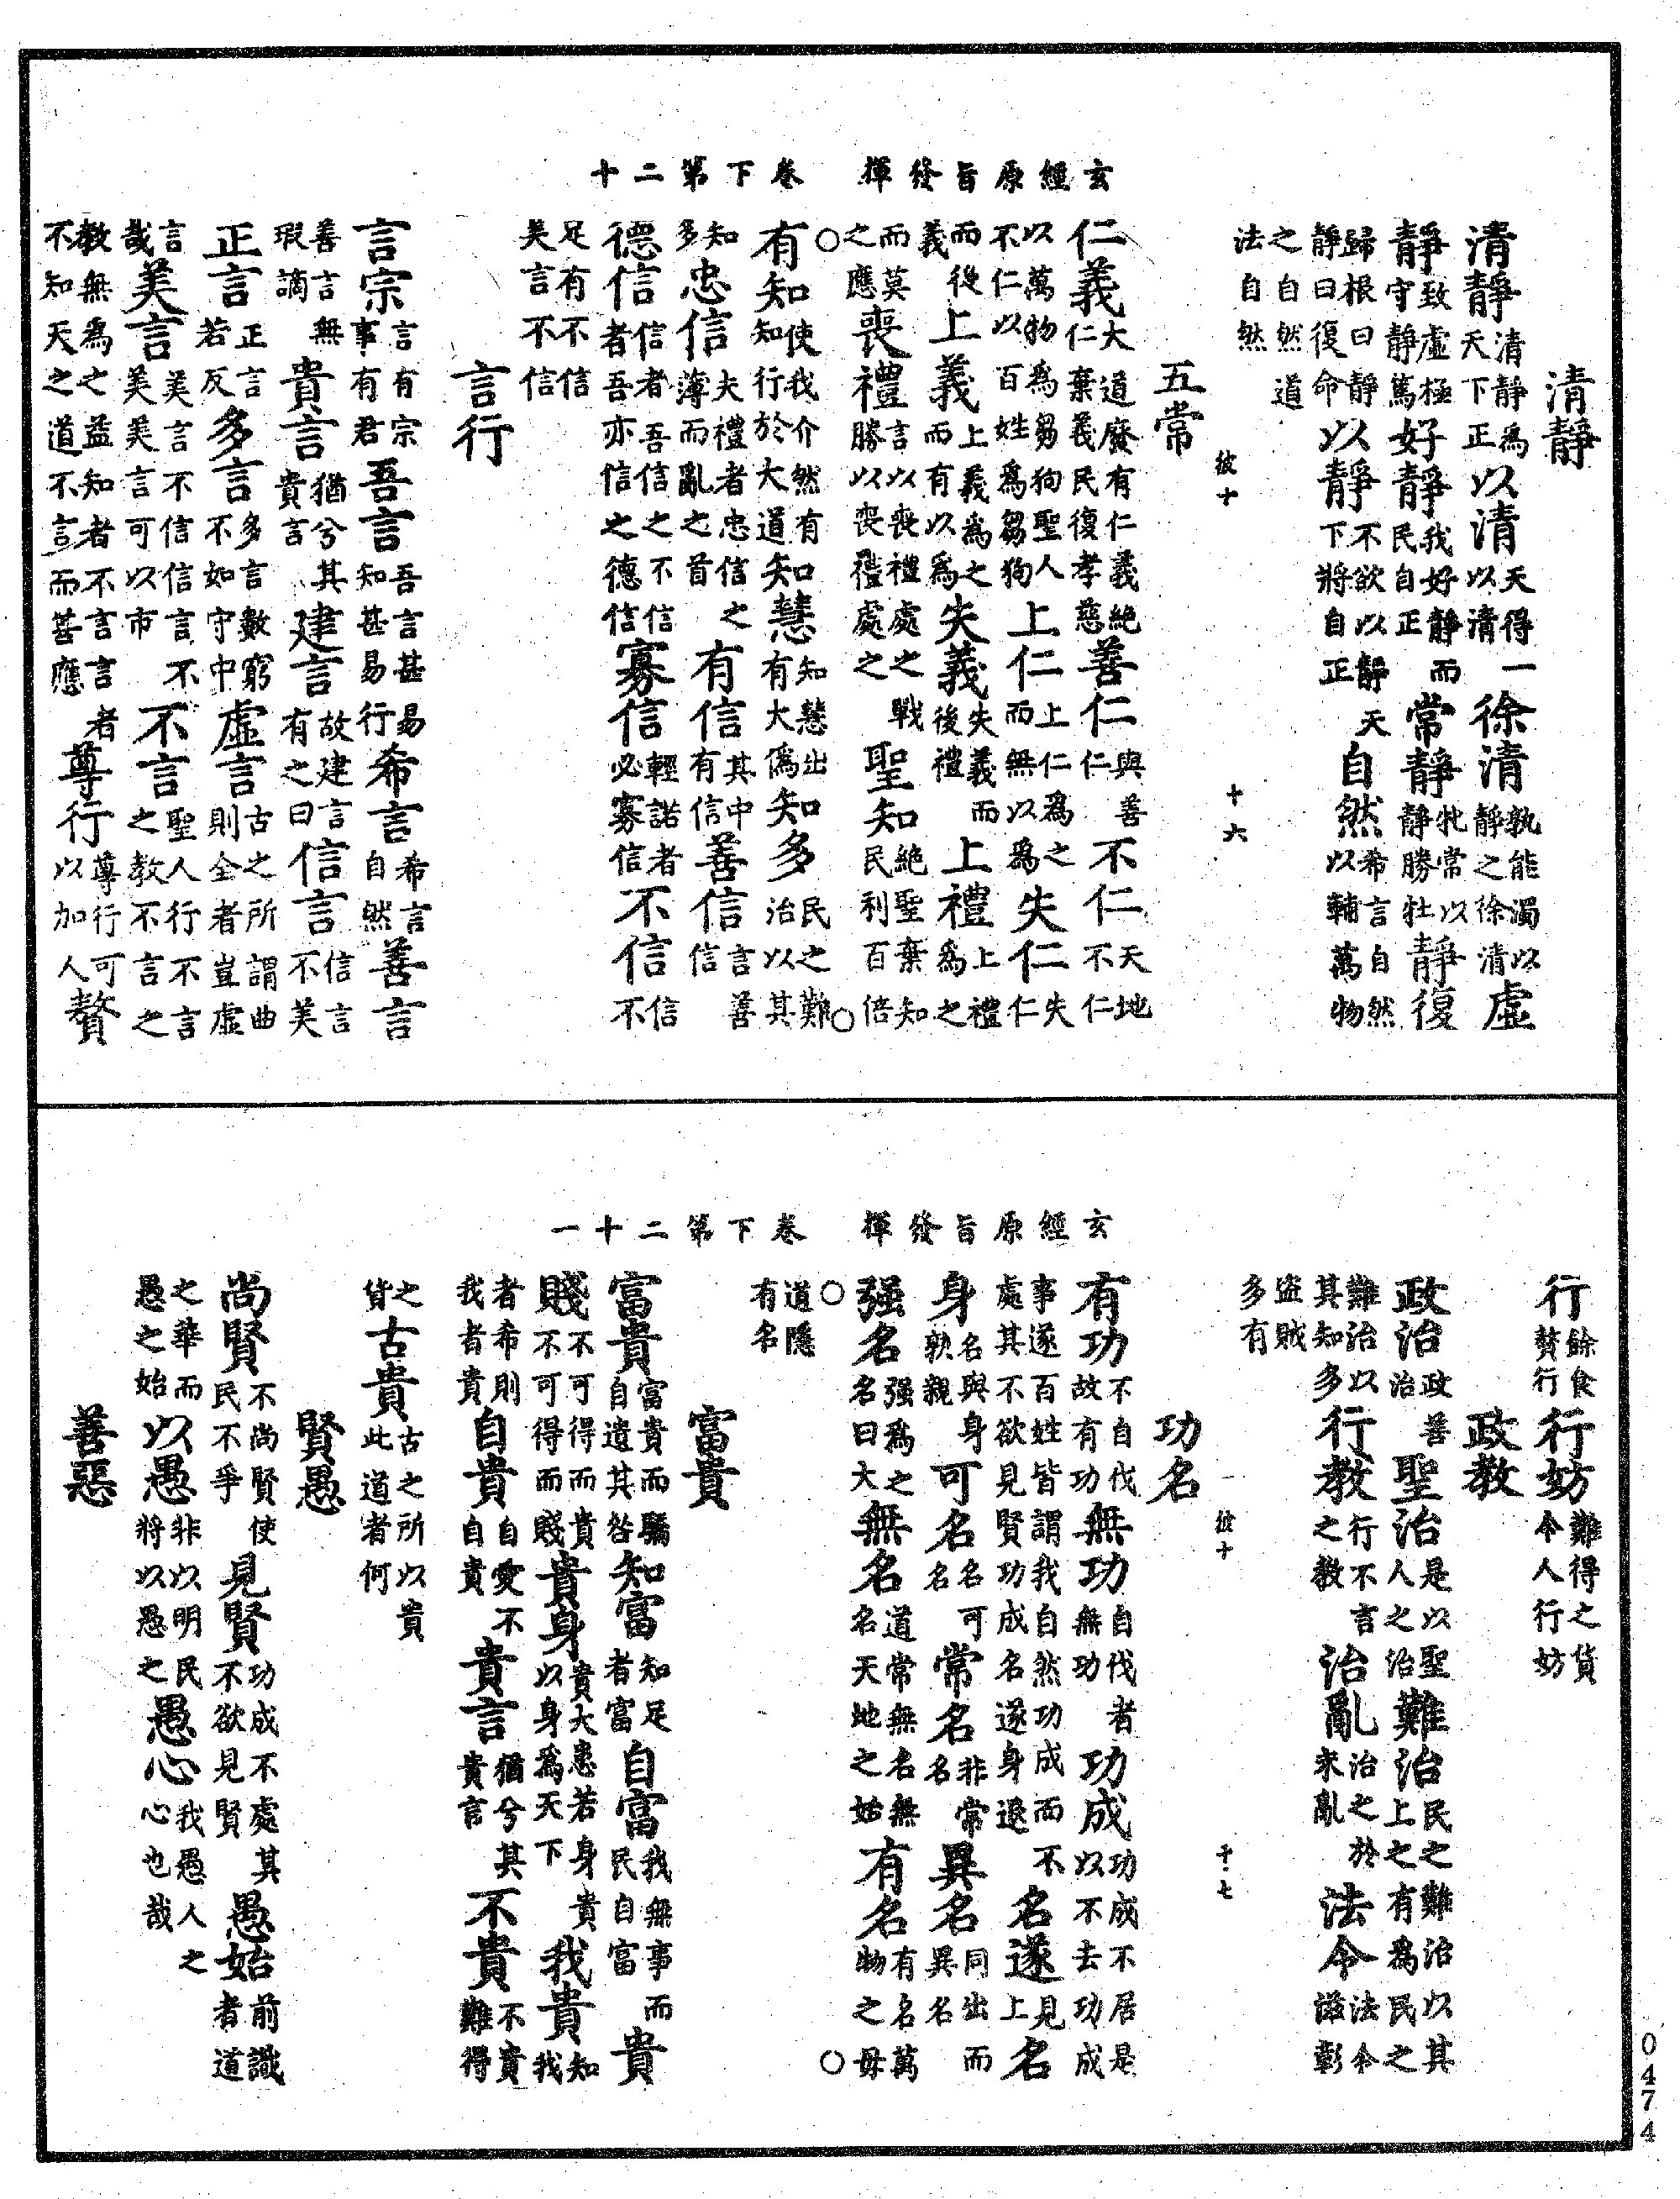 玄經原旨發揮　卷下第二十
清靜
清靜清靜為天下正以清天得一以清徐清孰能濁以靜之徐清虛
靜致虛極守靜篤好靜我好靜而民自正常靜牝常以靜勝牡靜復
歸根曰靜靜曰復命以靜不欲以靜天下將自正自然希言自然以輔萬物
之自然道法自然
彼十　十六
五常
仁義大道廢有仁義絕仁棄義民復孝慈善仁與善仁不仁天地不仁
以萬物為芻狗聖人不仁以百姓為芻狗上仁上仁為之而無以為失仁失仁
而後義上義上義為之而有以為失義失義而後禮上禮上禮為之
而莫之應喪禮言以喪禮處之戰勝以喪禮處之聖知絕聖棄知民利百倍
○　○
有知使我介然有知行於大道知慧知慧出有大偽知多民之難治以其
知多忠信夫禮者忠信之薄而亂之首有信其中有信善信言善信
德信信者吾信之不信者吾亦信之德信寡信輕諾者必寡信不信信不
足有不信美言不信
言行
言宗言有宗事有君吾言吾言甚易知甚易行希言希言自然善言
善言無瑕謫貴言猶兮其貴言建言故建言有之曰信言信言不美
正言正言若反多言多言數窮不如守中虛言古之所謂曲則全者豈虛
言哉美言美言不信信言不美美言可以市不言聖人行不言之教不言之
教無為之益知者不言言者不知天之道不言而善應尊行尊行可以加人贅
玄經原旨發揮　卷下第二十一
行餘食贅行行妨難得之貨令人行妨
政教
政治政善治聖治是以聖人之治難治民之難治以其上之有為民之
難治以其知多行教行不言之教治亂治之於未亂法令法令滋彰
盜賊多有
彼十　十七
功名
有功不自伐故有功無功自伐者無功功成功成不居是以不去功成
事遂百姓皆謂我自然功成而不處其不欲見賢功成名遂身退名遂見上名
身名與身孰親可名名可名常名非常名異名同出而異名
强名强為之名曰大無名道常無名無名天地之始有名有名萬物之母
○　○
道隱有名
富貴
富貴富貴而驕自遺其咎知富知足者富自富我無事而民自富貴
賤不可得而貴不可得而賤貴身貴大患若身貴以身為天下我貴知我
者希則我者貴自貴自愛不自貴貴言猶兮其貴言不貴不貴難得
之貨古貴古之所以貴此道者何
賢愚
尚賢不尚賢使民不爭見賢功成不處其不欲見賢愚始前識者道
之華而愚之始以愚非以明民將以愚之愚心我愚人之心也哉
善惡
0474